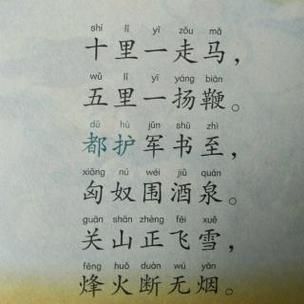 shí lǐ yī zǒu mǎ
十里一走马，
wǔ lǐ yī yáng biān
五里一扬鞭。
dū hù jūn shū zhì
都护军书至，
xiōng nú wéi jiǔ quán
匈奴围酒泉。
guān shān zhèng fēi xuě
关山正飞雪，
fēng huǒ duàn wú yān
烽火断无烟。